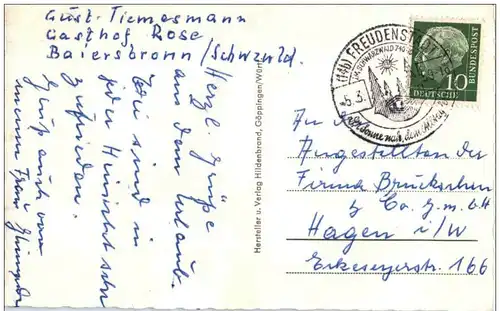 Gust. Tiemesmann
Gasthof Rose
Baiersbronn / Schwzwld.
Herzl. Grüße
aus dem Urlaub.
Wir sind in
jeder Hinsicht sehr
zufrieden.
Gruß auch von
meiner Frau
Hersteller u. Verlag Hildenbrand, Göppingen/Württ.
FREUDENSTADT
IM SCHWARZWALD 740
10
DEUTSCHE
BUNDESPOST
An die
Angestellten der
Firma Brückschen
& Co. G.m.b.H
Hagen i/W
Eckeseyerstr. 166